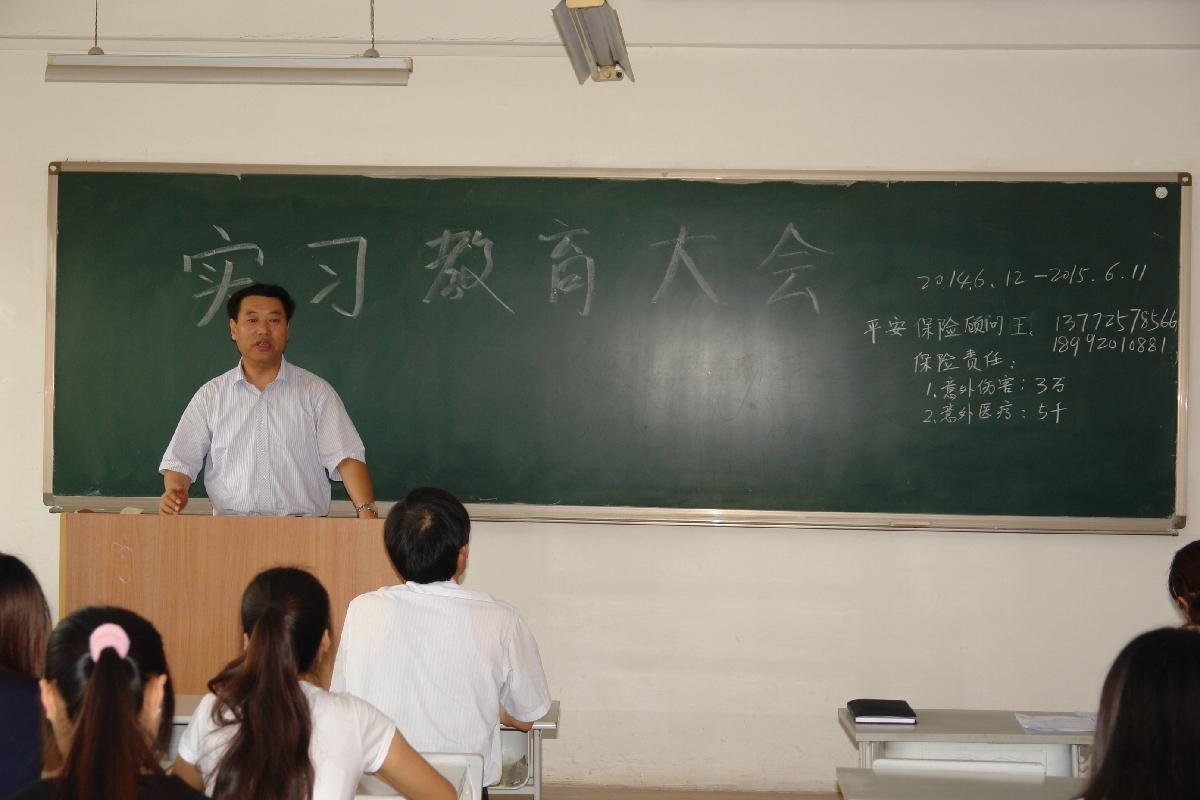 实习教育大会
2014.6.12-2015.6.11
平安保险顾问王. 13772578566
18992010881
保险责任:
1.意外伤害:3万
2.意外医疗:5千